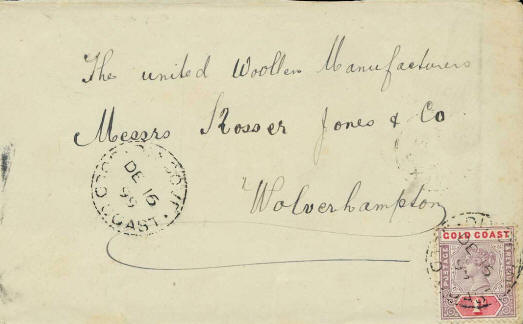 The united Woollen Manufacturers
Messrs Rosser Jones & Co
Wolverhampton
DE 16
99
COAST
GOLD COAST
POSTAGE
DE 16